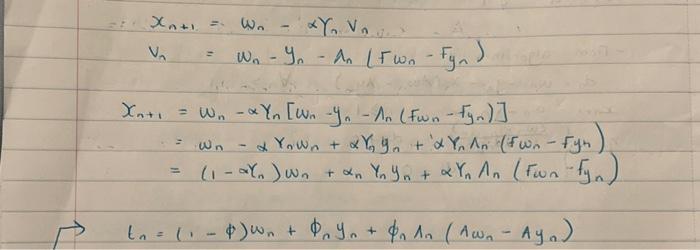 x_{n+1} = w_n - αγ_n v_n
v_n = w_n - y_n - λ_n (Fw_n - Fy_n)
x_{n+1} = w_n - αγ_n [w_n - y_n - λ_n (Fw_n - Fy_n)]
= w_n - αγ_n w_n + αγ_n y_n + αγ_n λ_n (Fw_n - Fy_n)
= (1 - αγ_n) w_n + α_n γ_n y_n + αγ_n λ_n (Fw_n - Fy_n)
t_n = (1 - ϕ) w_n + ϕ_n y_n + ϕ_n λ_n (Aw_n - Ay_n)